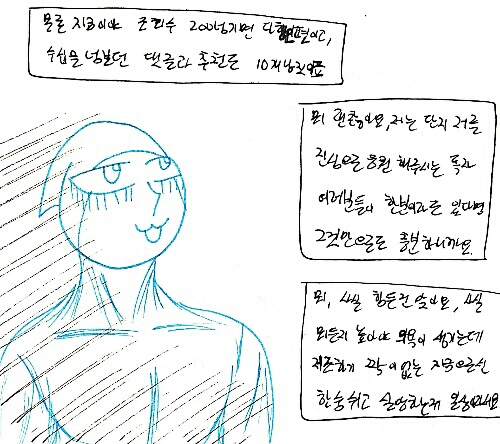 물론 지금이야 조회수 200넘기면 다행인편이고,
수십을 넘보던 댓글과 추천은 10개남짓이죠
뭐 괜찮아요, 저는 단지 저를
진심으로 응원 해주시는 독자
여러분들이 한분이라도 있다면
그것만으로도 충분하니까요.
뭐, 사실 힘든건 맞아요, 사실
뭐든지 높아야 의욕이 생기는데
저조하기 짝이없는 지금으로선
한숨쉬고 실망하는게 일상이네요